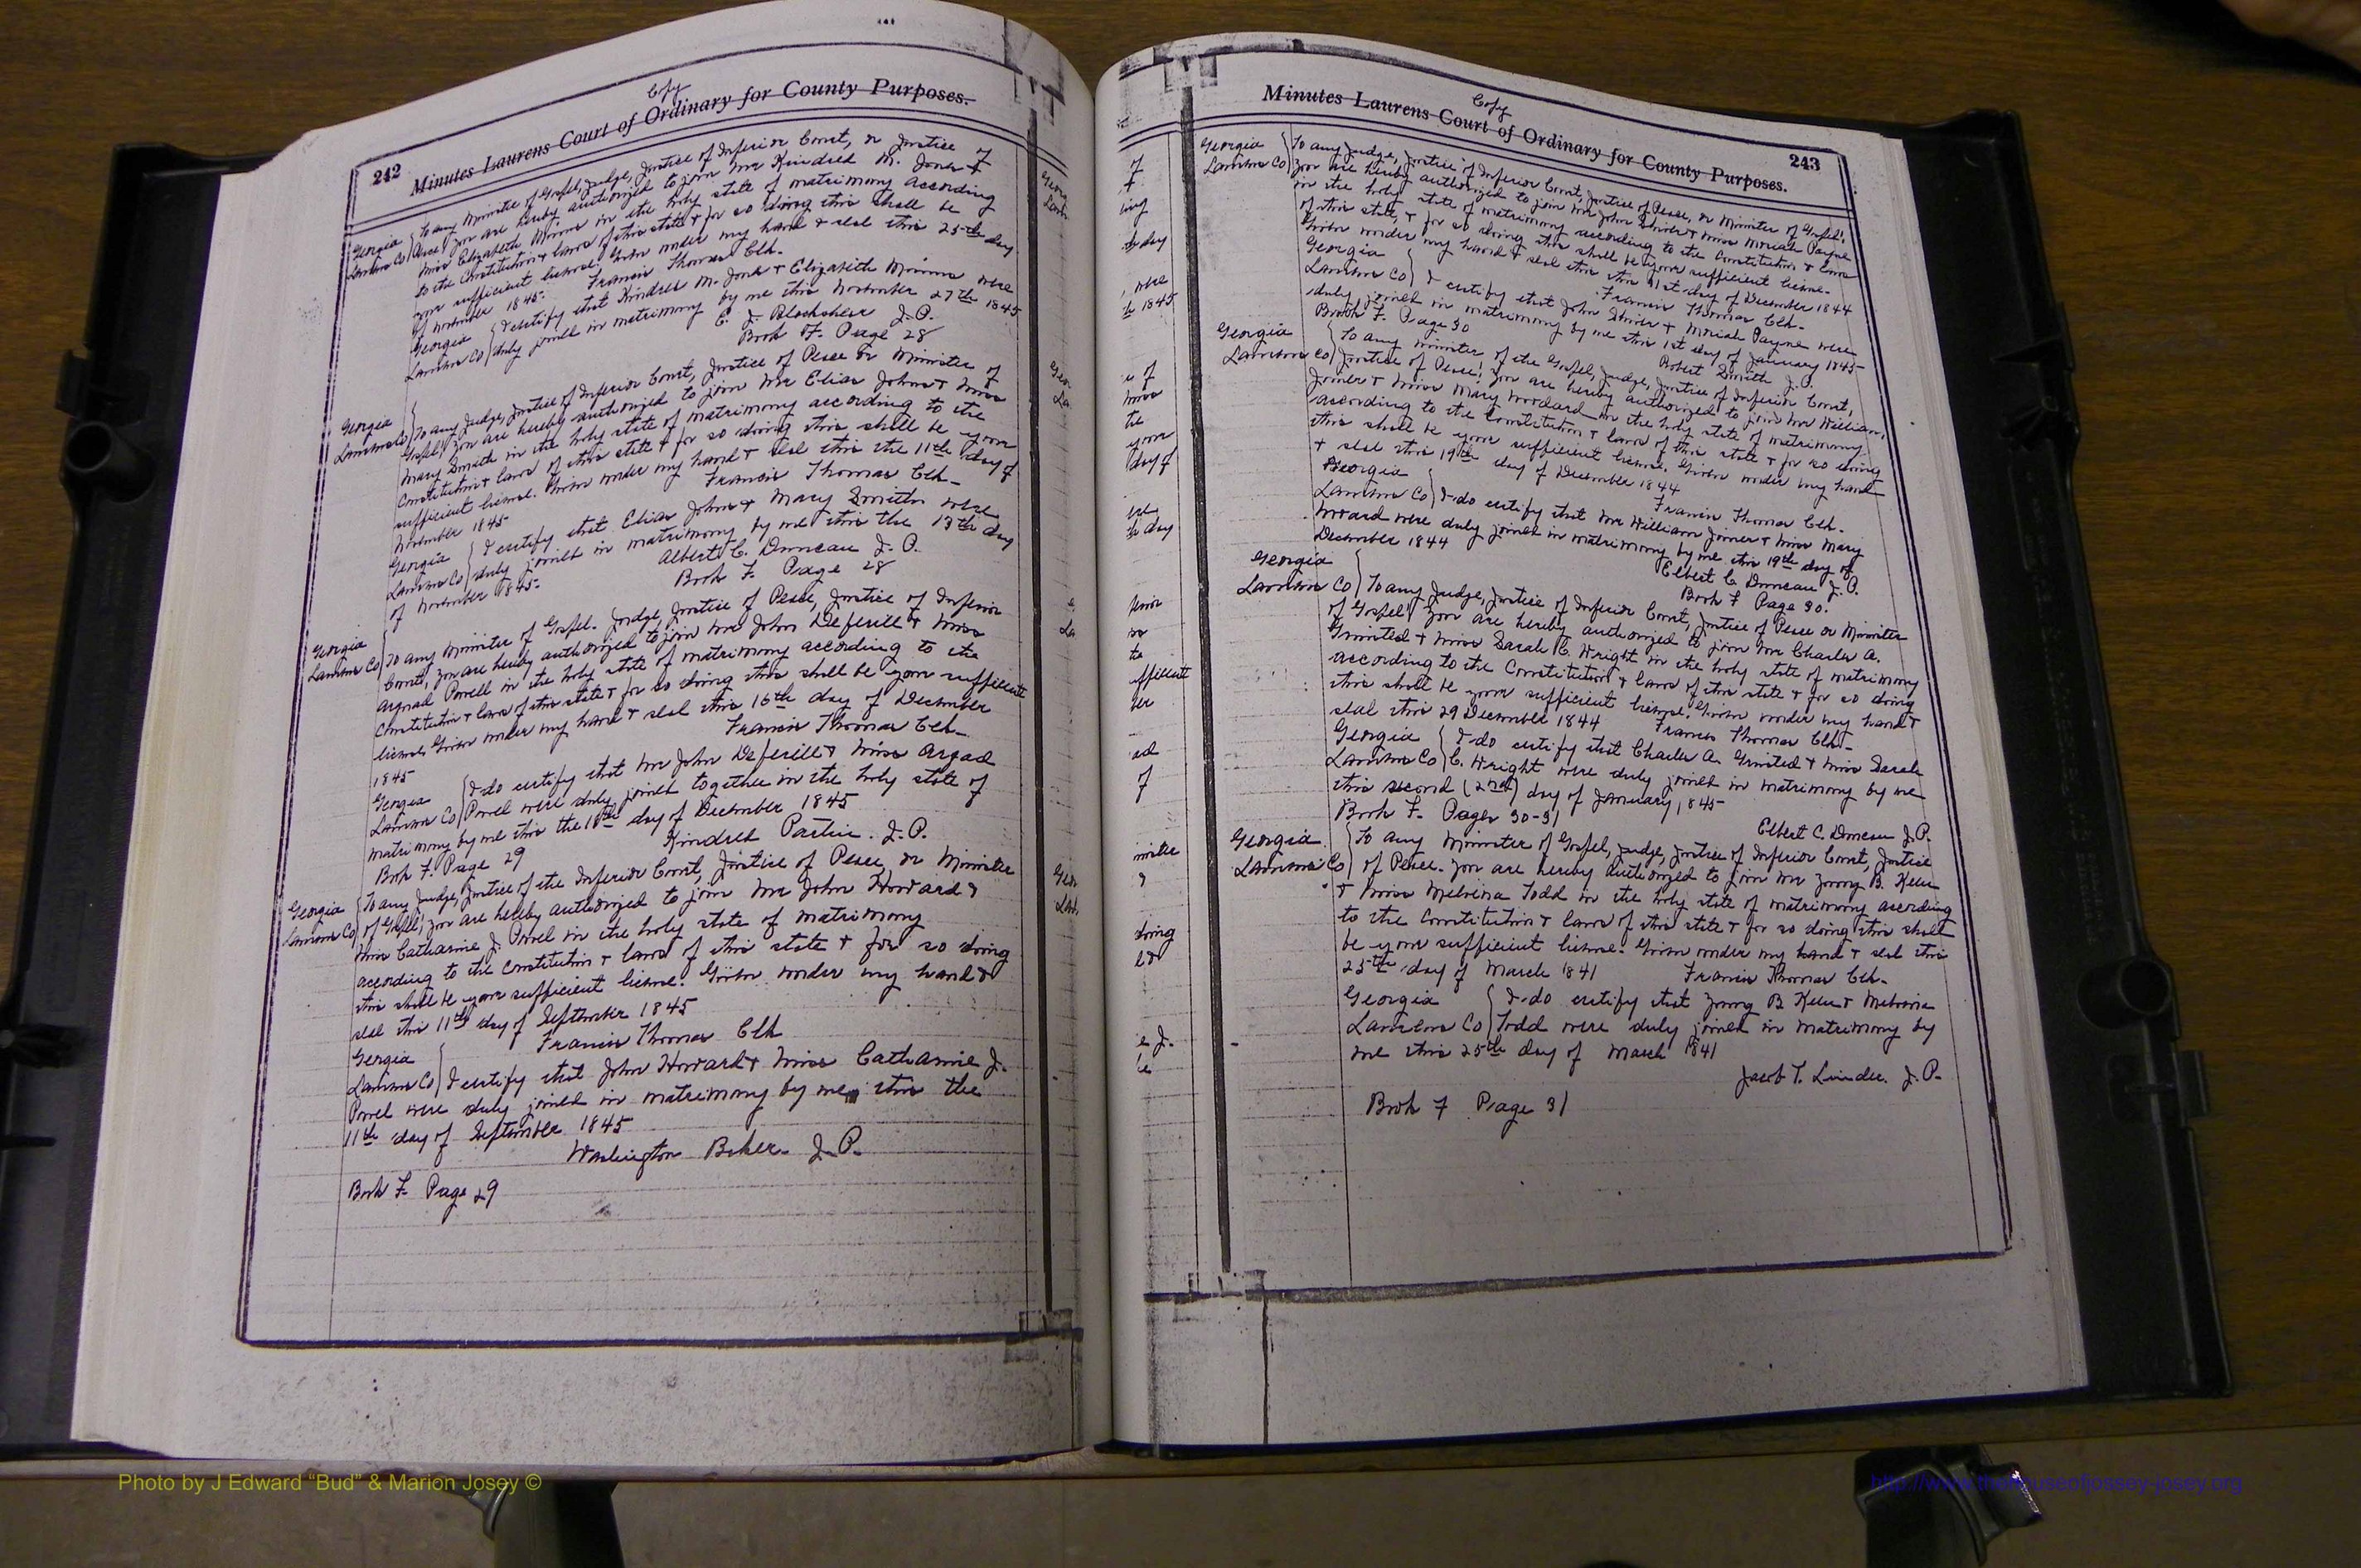 Copy
242 Minutes Laurens Court of Ordinary for County Purposes.
Georgia
Laurens Co
To any Minister of Gospel, Judge, Justice of Inferior Court, or Justice of
Peace, You are hereby authorized to join Mr Kindred M. Jones &
Miss Elizabeth Mimms in the holy state of matrimony according
to the Constitution & laws of this state & for so doing this shall be
your sufficient license. Given under my hand & seal this 25th day
of November 1845. Francis Thomas Clk.
Georgia
Laurens Co
I certify that Kindred M. Jones & Elizabeth Mimms were
duly joined in matrimony by me this November 27th 1845
E. J. Blackshear J. P.
Book F. Page 28
Georgia
Laurens Co
To any Judge, Justice of Inferior Court, Justice of Peace or Minister of
Gospel! You are hereby authorized to join Mr Elias Johns & Miss
Mary Smith in the holy state of matrimony according to the
Constitution & laws of this state & for so doing this shall be your
sufficient license. Given under my hand & seal this the 11th day of
November 1845- Francis Thomas Clk-
Georgia
Laurens Co
I certify that Elias Johns & Mary Smith were
duly joined in matrimony by me this the 13th day
of November 1845-
Albert C. Duncan J. P.
Book F. Page 28
Georgia
Laurens Co
To any Minister of Gospel. Judge, Justice of Peace, Justice of Inferior
Court, You are hereby authorized to join Mr John Deferill & Miss
Argad Powell in the holy state of matrimony according to the
Constitution & laws of this state & for so doing this shall be your sufficient
license. Given under my hand & seal this 16th day of December
1845 Francis Thomas Clk-
Georgia
Laurens Co
I do certify that Mr John Deferill & Miss Argad
Powel were duly joined together in the holy state of
matrimony by me this the 18th day of December 1845
Kindred Partin. J. P.
Book F. Page 29
Georgia
Laurens Co
To any Judge, Justice of the Inferior Court, Justice of Peace, or Minister
of Gospel; you are hereby authorized to join Mr John Howard &
Miss Catharine J. Powel in the holy state of matrimony
according to the Constitution & laws of this state & for so doing
this shall be your sufficient license. Given under my hand &
seal this 11th day of September 1845
Francis Thomas Clk
Georgia
Laurens Co
I certify that John Howard & Miss Catharine J.
Powel were duly joined in matrimony by me, this the
11th day of September 1845
Washington Baker. J. P.
Book F. Page 29
Copy
Minutes Laurens Court of Ordinary for County Purposes. 243
Georgia
Laurens Co
To any Judge, Justice of Inferior Court, Justice of Peace, or Minister of Gospel!
You are hereby authorized to join Mr John Shiver & Miss Moriah Payne
in the holy state of matrimony according to the Constitution & laws
of this state, & for so doing this shall be your sufficient license.
Given under my hand & seal this the 31st day of December 1844
Francis Thomas Clk-
Georgia
Laurens Co
I certify that John Shiver & Moriah Payne were
duly joined in matrimony by me this 1st day of January 1845-
Robert Smith J. P.
Book F. Page 30
Georgia
Laurens Co
To any minister of the Gospel, Judge, Justice of Inferior Court,
Justice of Peace! You are hereby authorized to join Mr William
Joiner & Miss Mary Woodard in the holy state of matrimony
according to the Constitution & laws of this state & for so doing
this shall be your sufficient license. Given under my hand
& seal this 19th day of December 1844
Francis Thomas Clk.
Georgia
Laurens Co
I do certify that Mr William Joiner & Miss Mary
Woodard were duly joined in matrimony by me this 19th day of
December 1844
Elbert C. Duncan J. P.
Book F Page 30.
Georgia
Laurens Co
To any Judge, Justice of Inferior Court, Justice of Peace or Minister
of Gospel; You are hereby authorized to join Mr Charles A.
Grinsted & Miss Sarah C. Wright in the holy state of matrimony
according to the Constitution & laws of this state & for so doing
this shall be your sufficient license. Given under my hand &
seal this 29 December 1844 Francis Thomas Clk-
Georgia
Laurens Co
I do certify that Charles A. Grinsted & Miss Sarah
C. Wright were duly joined in matrimony by me
this second (2nd) day of January, 1845-
Elbert C. Duncan J. P.
Book F. Pages 30-31
Georgia
Laurens Co
To any Minister of Gospel, Judge, Justice of Inferior Court, Justice
of Peace. You are hereby authorized to join Mr Young B. Keen
& Miss Melvina Todd in the holy state of matrimony according
to the Constitution & laws of this state & for so doing this shall
be your sufficient license. Given under my hand & seal this
25th day of March 1841 Francis Thomas Clk.
Georgia
Laurens Co
I do certify that Young B Keen & Melvina
Todd were duly joined in matrimony by
me this 25th day of March 1841
Jacob T. Linder. J. P.
Book F Page 31
Photo by J Edward “Bud” & Marion Josey ©
http://www.thehouseofjossey-josey.org